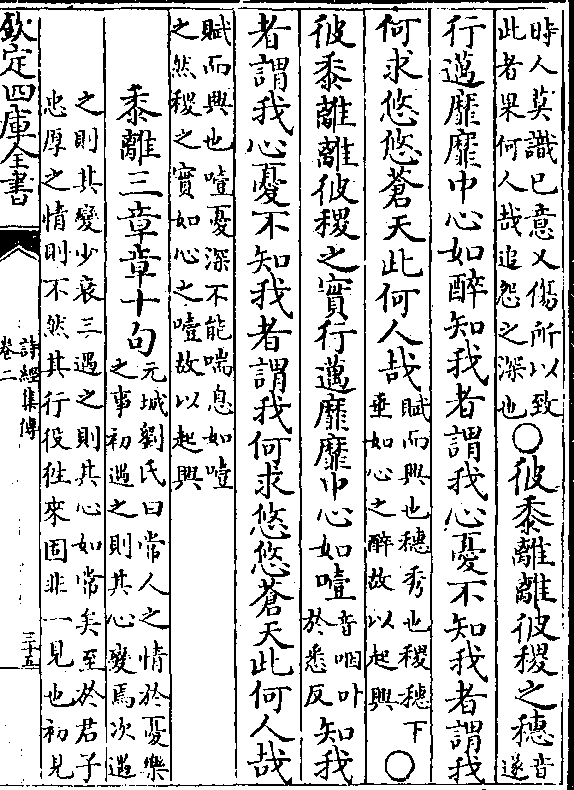 時人莫識已意又傷所以致
此者果何人哉追怨之深也○彼黍離離彼稷之穗音遂
行邁靡靡中心如醉知我者謂我心憂不知我者謂我
何求悠悠蒼天此何人哉賦而興也穗秀也稷穗下
垂如心之醉故以起興○
彼黍離離彼稷之實行邁靡靡中心如噎音咽叶
於悉反知我
者謂我心憂不知我者謂我何求悠悠蒼天此何人哉
賦而興也噎憂深不能喘息如噎
之然稷之實如心之噎故以起興
黍離三章章十句元城劉氏曰常人之情於憂樂
之事初遇之則其心變焉次遇
之則其變少衰三遇之則其心如常矣至於君子
忠厚之情則不然其行役往來固非一見也初見
欽定四庫全書
詩經集傳
卷二
三十五